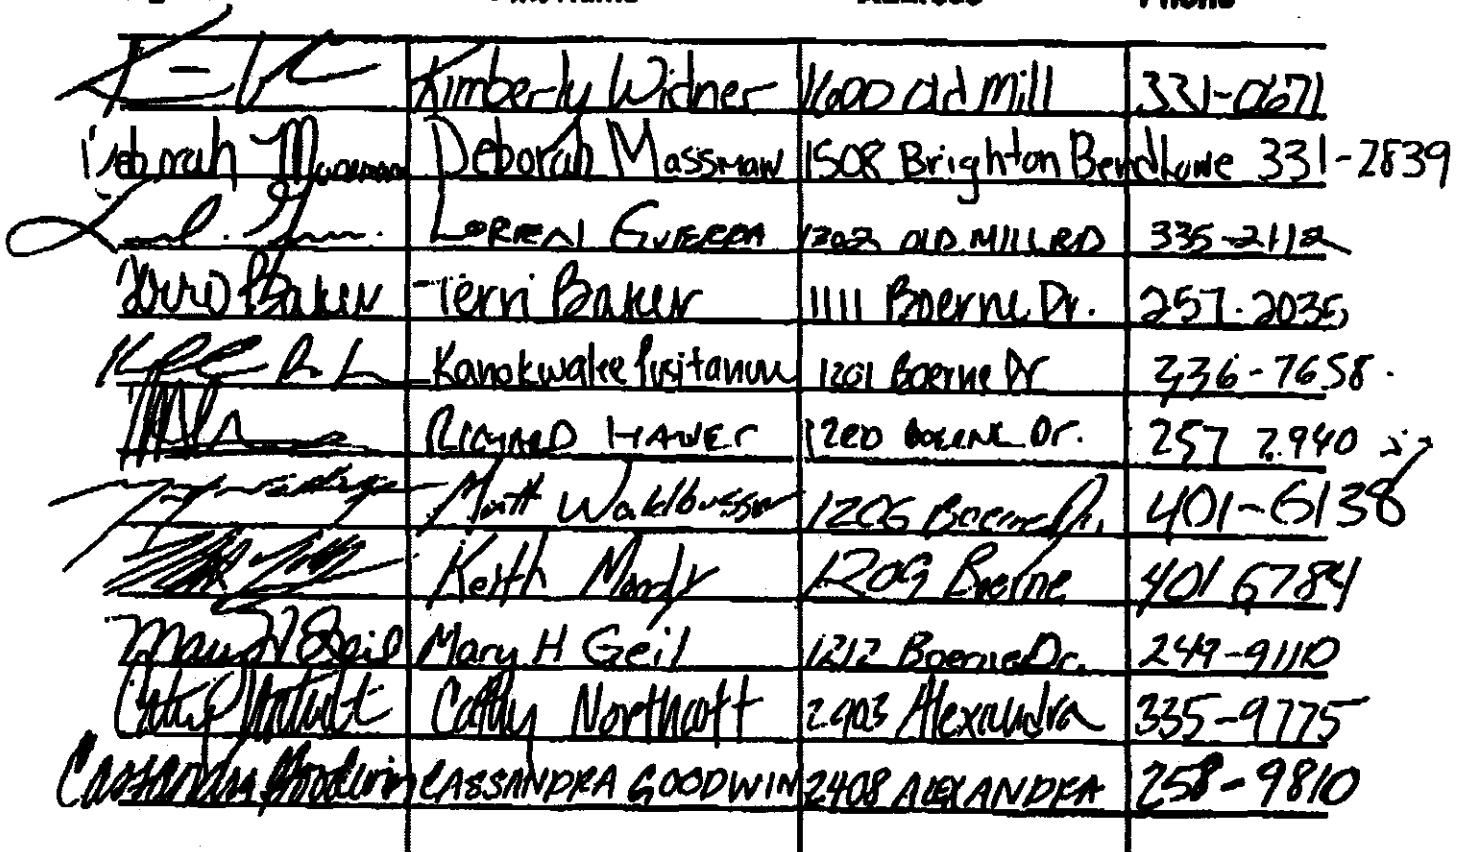 Print Name Address Phone
Kimberly Widner 1600 Old Mill 331-0671
Deborah Massman Deborah Massman 1508 Brighton Bend Lane 331-2839
Lorreni Guerra 1202 Old Mill RD 335-2112
Terri Baker Terri Baker 1111 Boerne Dr. 257-2035
Kanokwalee 1201 Boerne Dr 236-7658
Richard Hawer 1200 Boerne Dr. 257 2940
Matt 1206 Boerne Dr. 401-6138
Keith Mardy 1209 Boerne 401 6784
Mary H Geil Mary H Geil 1212 Boerne Dr. 249-9110
Cathy Northcott Cathy Northcott 2403 Alexandra 335-9775
Cassandra Goodwin CASSANDRA GOODWIN 2408 ALEXANDRA 258-9810